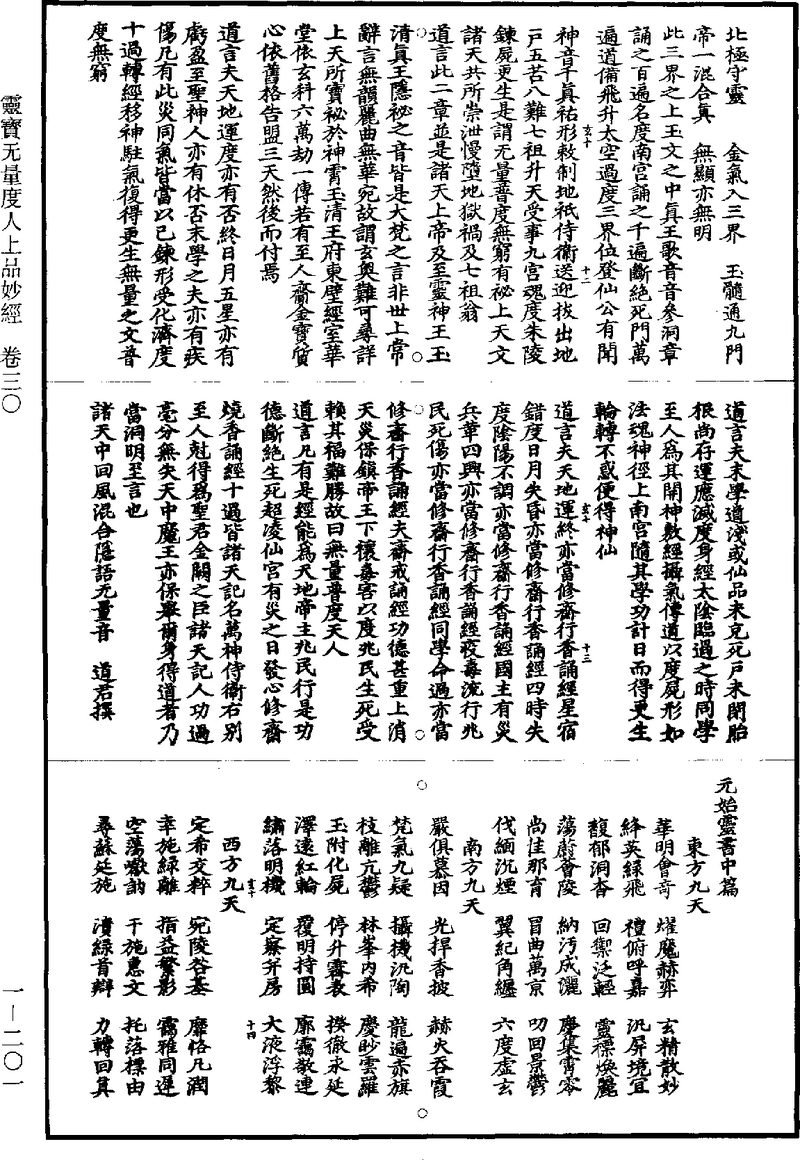 北極守靈　金氣入三界　玉髓通九門
帝一混合真　無顯亦無明
此三界之上玉文之中真王歌音音參洞章
誦之百遍名度南宮誦之千遍斷絶死門萬
遍道備飛升太空過度三界位登仙公有聞
神音千真祐形敕制地祇侍衛送迎拔出地
戶五苦八難七祖升天受事九宮魂度朱陵
鍊屍更生是謂无量普度無窮有祕上天文
諸天共所崇泄慢墮地獄禍及七祖翁
道言此二章並是諸天上帝及至靈神王玉
清真王隱祕之音皆是大梵之言非世上常
辭言無韻麗曲無華宛故謂玄奧難可尋詳
上天所寶祕於神霄玉清王府東壁經室華
堂依玄科六萬劫一傳若有至人齎金寶質
心依舊格告盟三天然後而付焉
道言夫天地運度亦有否終日月五星亦有
虧盈至聖神人亦有休否末學之夫亦有疾
傷凡有此災同氣皆當以己鍊形受化濟度
十過轉經移神駐氣復得更生無量之文普
度無窮
道言夫末學道淺或仙品未充死戶未閉胎
根尚存運應滅度身經太陰臨過之時同學
至人為其開神敷經攝氣傳道以度屍形如
法魂神徑上南宮隨其學功計日而得更生
輪轉不惑便得神仙
道言夫天地運終亦當修齋行香誦經星宿
錯度日月失昏亦當修齋行香誦經四時失
度陰陽不調亦當修齋行香誦經國主有災
兵革四興亦當修齋行香誦經疫毒流行兆
民死傷亦當修齋行香誦經同學命過亦當
修齋行香誦經夫齋戒誦經功德甚重上消
天災保鎮帝王下禳毒害以度兆民生死受
賴其福難勝故曰無量普度天人
道言凡有是經能為天地帝主兆民行是功
德斷絶生死超凌仙宮有災之日發心修齋
燒香誦經十過皆諸天記名萬神侍衛右別
至人剋得為聖君金闕之臣諸天記人功過
毫分無失天中魔王亦保舉爾身得道者乃
當洞明至言也
諸天中回風混合隱語无量音　道君撰
元始靈書中篇
東方九天
華明會奇　燿魔赫弈　玄精散妙
絳英綠飛　禮俯呼嘉　汎屏境宜
馥郁洞杳　回禦泛輕　靈標煥麗
蕩蔚會陵　納汚成灑　塵集霄零
尚隹那育　冒曲萬京　叨回景鬱
伐緬沉煙　翼紀角纏　六度虛玄
南方九天
嚴俱慕因　光捍香披　赫火吞霞
梵氣九疑　攝機汎陶　龍遍赤旗
枝離亢鬱　林峯內希　慶眇雲羅
玉附化屍　停升霱表　揆徹永延
澤遠紅輪　覆明持圓　廓靄敬連
繡落明機　定察弁房　大液浮黎
西方九天
定希交粹　宛陵谷基　靡恪凡潤
幸施緑離　指益繁影　靄雅同遲
空蕩墩訥　干施惠文　托落標由
尋蘇廷施　瀆綠首辯　力轉回其
靈寶无量度人上品妙經　卷三〇
一—二〇一